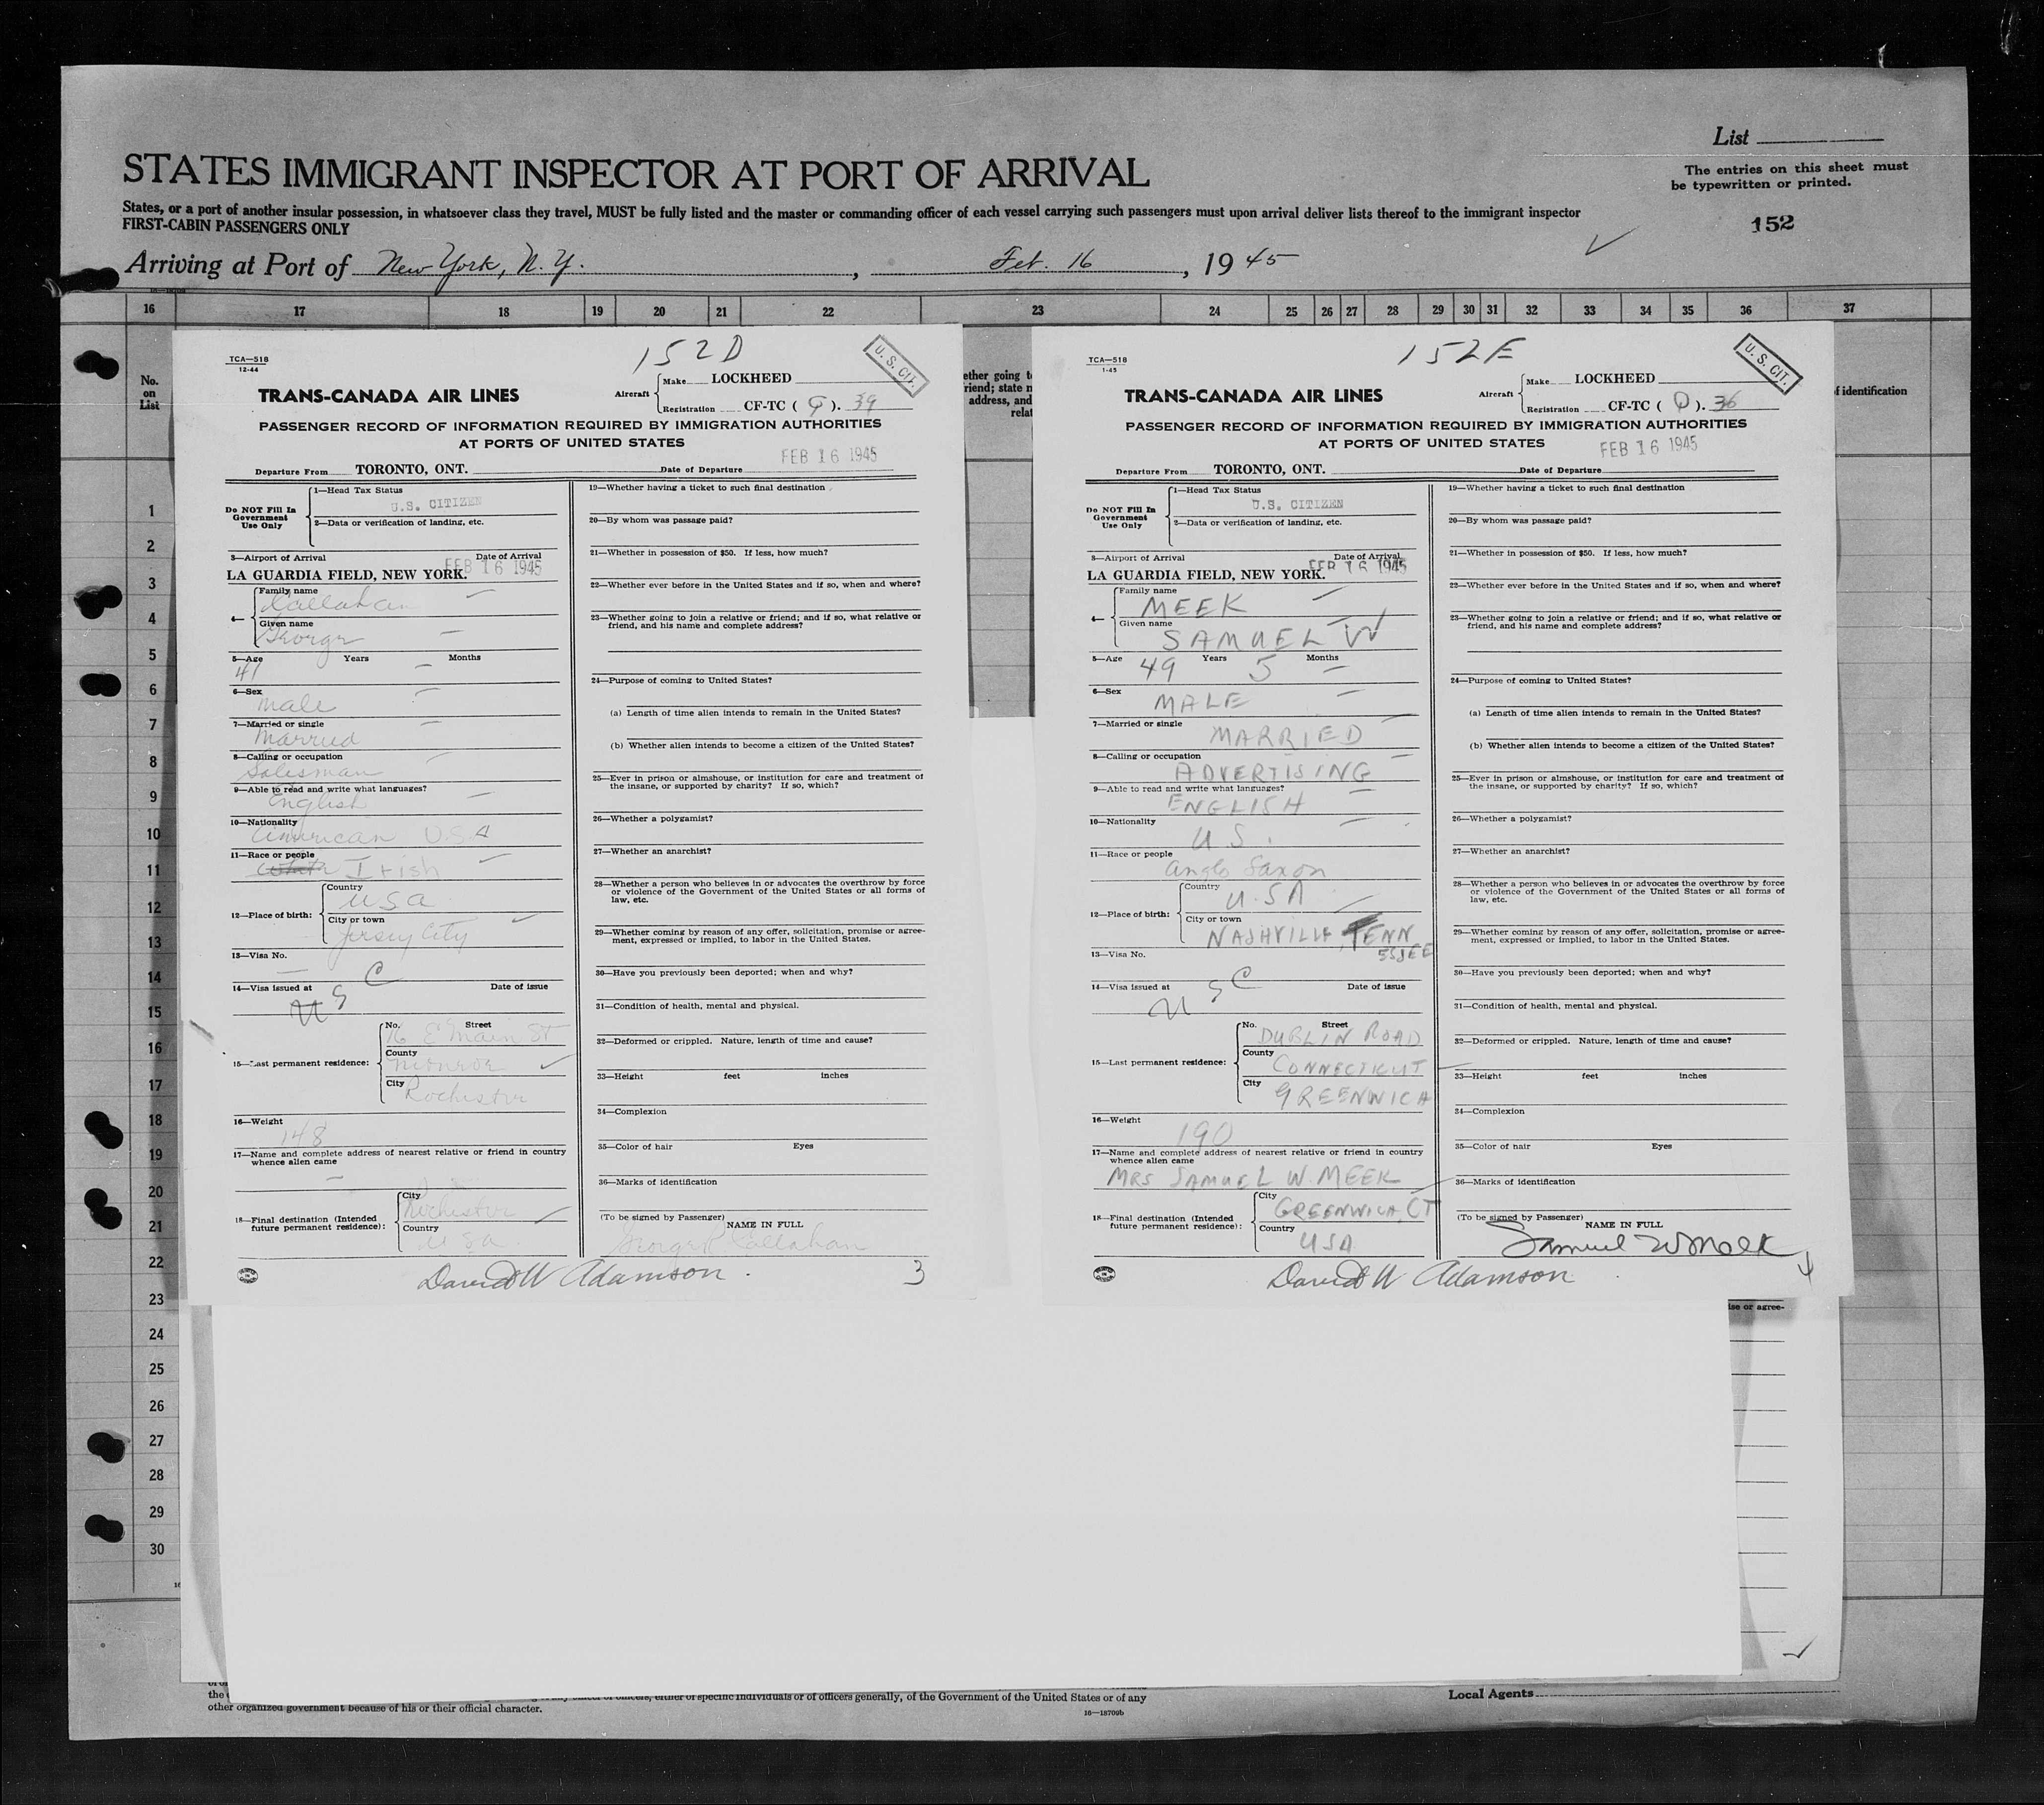 List
STATES IMMIGRANT INSPECTOR AT PORT OF ARRIVAL
The entries on this sheet must
be typewritten or printed.
States, or a port of another insular possession, in whatsoever class they travel, MUST be fully listed and the master or commanding officer of each vessel carrying such passengers must upon arrival deliver lists thereof to the immigrant inspector
FIRST-CABIN PASSENGERS ONLY
152
Arriving at Port of New York, N. Y. , Feb. 16 , 19 45
16 17 18 19 20 21 22 23 24 25 26 27 28 29 30 31 32 33 34 35 36 37
No.
on
List
ether going t
riend; state n
address, and
relat
f identification
1
2
3
4
5
6
7
8
9
10
11
12
13
14
15
16
17
18
19
20
21
22
23
24
25
26
27
28
29
30
152D
U. S. CIT.
TCA—518
12-44
TRANS-CANADA AIR LINES
Aircraft
Make LOCKHEED
Registration CF-TC ( Q ). 39
PASSENGER RECORD OF INFORMATION REQUIRED BY IMMIGRATION AUTHORITIES
AT PORTS OF UNITED STATES
FEB 16 1945
Departure From TORONTO, ONT. Date of Departure
Do NOT Fill In
Government
Use Only
1—Head Tax Status
U.S. CITIZEN
2—Data or verification of landing, etc.
3—Airport of Arrival Date of Arrival
LA GUARDIA FIELD, NEW YORK. FEB 16 1945
4—
Family name
Callahan
Given name
George
5—Age Years Months
41
6—Sex
Male
7—Married or single
Married
8—Calling or occupation
Salesman
9—Able to read and write what languages?
English
10—Nationality
American USA
11—Race or people
Irish
12—Place of birth:
Country
USA
City or town
Jersey City
13—Visa No.
14—Visa issued at Date of issue
USC
15—Last permanent residence:
No. Street
16 E Main St
County
Monroe
City
Rochester
16—Weight
148
17—Name and complete address of nearest relative or friend in country
whence alien came
18—Final destination (Intended
future permanent residence):
City
Rochester
Country
USA
19—Whether having a ticket to such final destination
20—By whom was passage paid?
21—Whether in possession of $50. If less, how much?
22—Whether ever before in the United States and if so, when and where?
23—Whether going to join a relative or friend; and if so, what relative or
friend, and his name and complete address?
24—Purpose of coming to United States?
(a) Length of time alien intends to remain in the United States?
(b) Whether alien intends to become a citizen of the United States?
25—Ever in prison or almshouse, or institution for care and treatment of
the insane, or supported by charity? If so, which?
26—Whether a polygamist?
27—Whether an anarchist?
28—Whether a person who believes in or advocates the overthrow by force
or violence of the Government of the United States or all forms of
law, etc.
29—Whether coming by reason of any offer, solicitation, promise or agree-
ment, expressed or implied, to labor in the United States.
30—Have you previously been deported; when and why?
31—Condition of health, mental and physical.
32—Deformed or crippled. Nature, length of time and cause?
33—Height feet inches
34—Complexion
35—Color of hair Eyes
36—Marks of identification
(To be signed by Passenger)
NAME IN FULL
George P Callahan
David W Adamson.
3
152E
U. S. CIT.
TCA—518
1-45
TRANS-CANADA AIR LINES
Aircraft
Make LOCKHEED
Registration CF-TC ( Q ). 36
PASSENGER RECORD OF INFORMATION REQUIRED BY IMMIGRATION AUTHORITIES
AT PORTS OF UNITED STATES
FEB 16 1945
Departure From TORONTO, ONT. Date of Departure
Do NOT Fill In
Government
Use Only
1—Head Tax Status
U.S. CITIZEN
2—Data or verification of landing, etc.
3—Airport of Arrival Date of Arrival
LA GUARDIA FIELD, NEW YORK. FEB 16 1945
4—
Family name
MEEK
Given name
SAMUEL W
5—Age 49 Years 5 Months
6—Sex
MALE
7—Married or single
MARRIED
8—Calling or occupation
ADVERTISING
9—Able to read and write what languages?
ENGLISH
10—Nationality
U S.
11—Race or people
Anglo Saxon
12—Place of birth:
Country
U.SA
City or town
NASHVILLE, TENN
ESSEE
13—Visa No.
14—Visa issued at Date of issue
USC
15—Last permanent residence:
No. Street
DUBLIN ROAD
County
CONNECTICUT
City
GREENWICH
16—Weight
190
17—Name and complete address of nearest relative or friend in country
whence alien came
MRS SAMUEL W MEEK
18—Final destination (Intended
future permanent residence):
City
GREENWICH, CT
Country
USA
19—Whether having a ticket to such final destination
20—By whom was passage paid?
21—Whether in possession of $50. If less, how much?
22—Whether ever before in the United States and if so, when and where?
23—Whether going to join a relative or friend; and if so, what relative or
friend, and his name and complete address?
24—Purpose of coming to United States?
(a) Length of time alien intends to remain in the United States?
(b) Whether alien intends to become a citizen of the United States?
25—Ever in prison or almshouse, or institution for care and treatment of
the insane, or supported by charity? If so, which?
26—Whether a polygamist?
27—Whether an anarchist?
28—Whether a person who believes in or advocates the overthrow by force
or violence of the Government of the United States or all forms of
law, etc.
29—Whether coming by reason of any offer, solicitation, promise or agree-
ment, expressed or implied, to labor in the United States.
30—Have you previously been deported; when and why?
31—Condition of health, mental and physical.
32—Deformed or crippled. Nature, length of time and cause?
33—Height feet inches
34—Complexion
35—Color of hair Eyes
36—Marks of identification
(To be signed by Passenger)
NAME IN FULL
Samuel W Meek
David W Adamson
ise or agree-
officers, either of specific individuals or of officers generally, of the Government of the United States or of any
other organized government because of his or their official character.
16—18700b
Local Agents